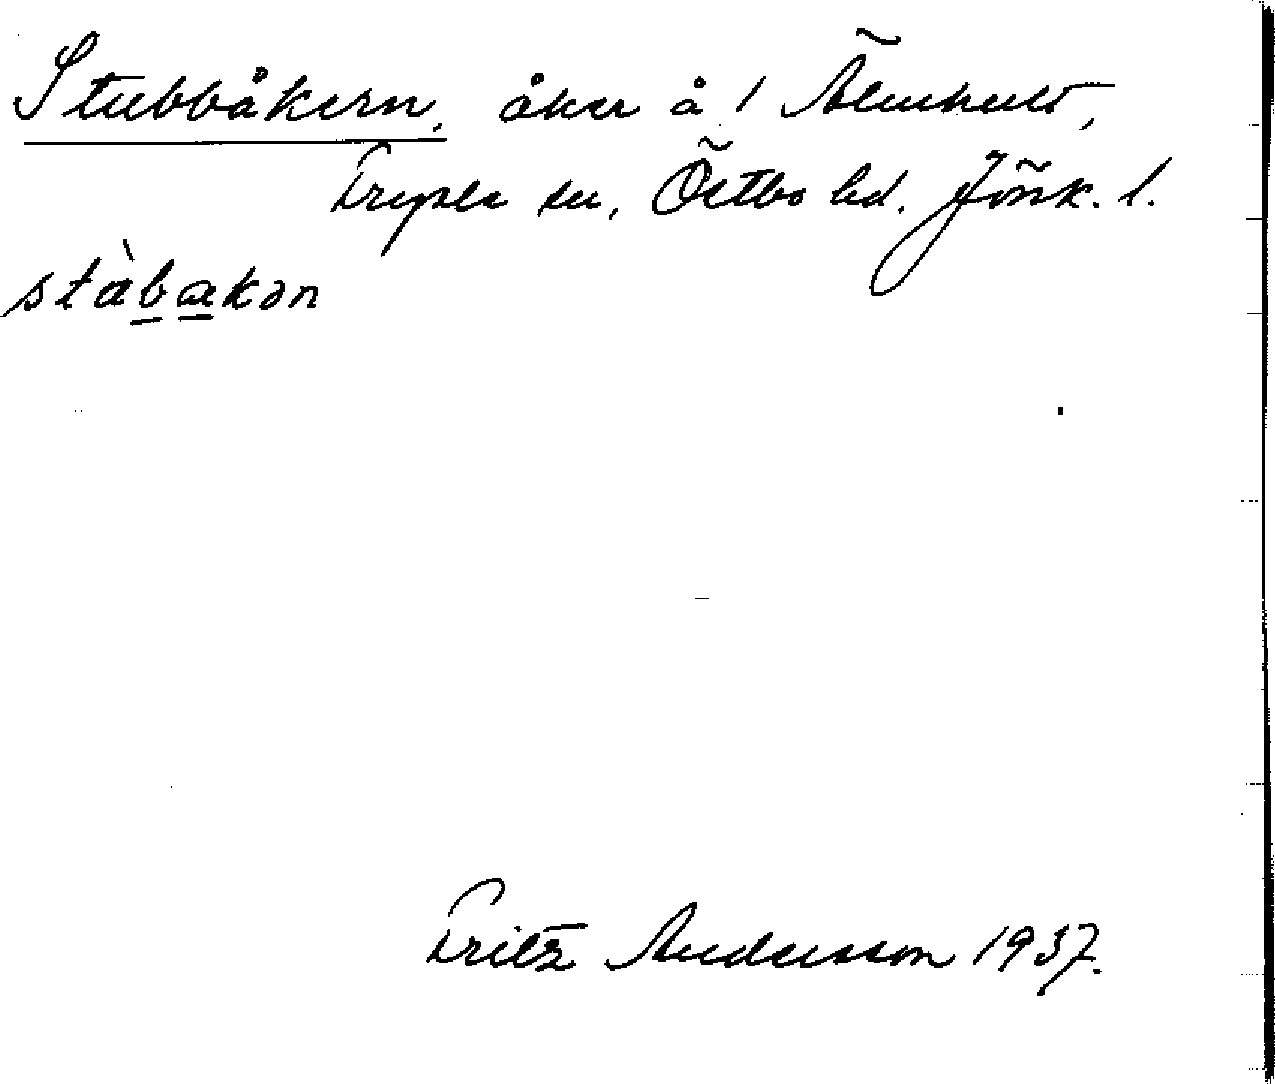 Stubbåkern, åker å 1 Älmhult,
Fryele sn, Östbo hd. Jönk. l.
stàbakən
Fritz Andersson 1937.